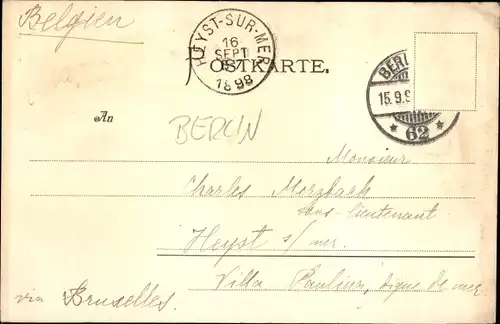 Belgien
HEYST-SUR-MER
16
SEPT
1898
POSTKARTE.
BERL
15.9.9
* 62 *
An
BERLIN
Monsieur
Charles Merzbach
sous-lieutenant
Heyst s/mer.
Villa Pauline, digue de mer
via Bruxelles.